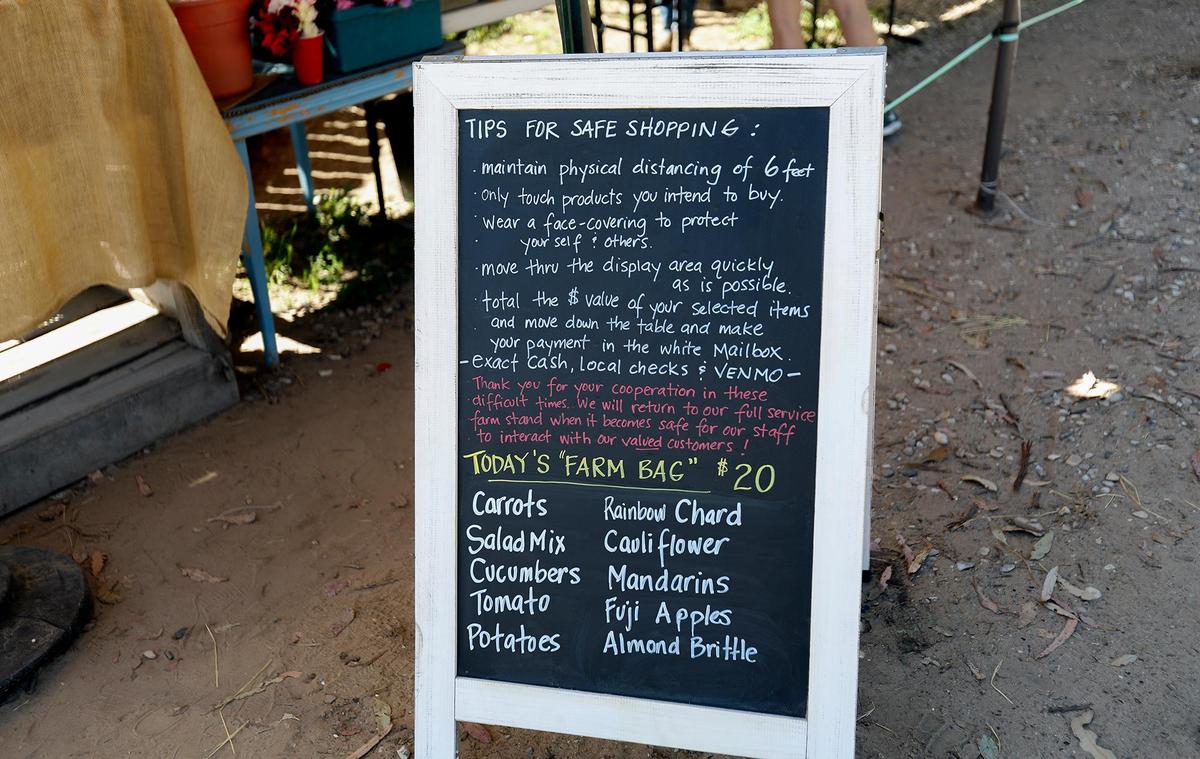 TIPS FOR SAFE SHOPPING:
· maintain physical distancing of 6 feet
· only touch products you intend to buy.
· wear a face-covering to protect
· yourself & others.
· move thru the display area quickly
as is possible.
· total the $ value of your selected items
and move down the table and make
your payment in the white Mailbox.
- exact cash, Local checks & VENMO -
Thank you for your cooperation in these
difficult times. We will return to our full service
farm stand when it becomes safe for our staff
to interact with our valued customers!
TODAY'S "FARM BAG" $20
Carrots Rainbow Chard
Salad Mix Cauliflower
Cucumbers Mandarins
Tomato Fuji Apples
Potatoes Almond Brittle